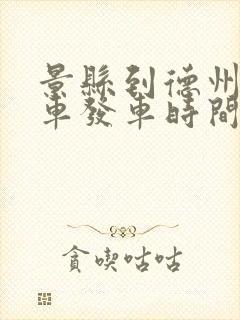 景縣到德州
車發車時間
貪喫咕咕